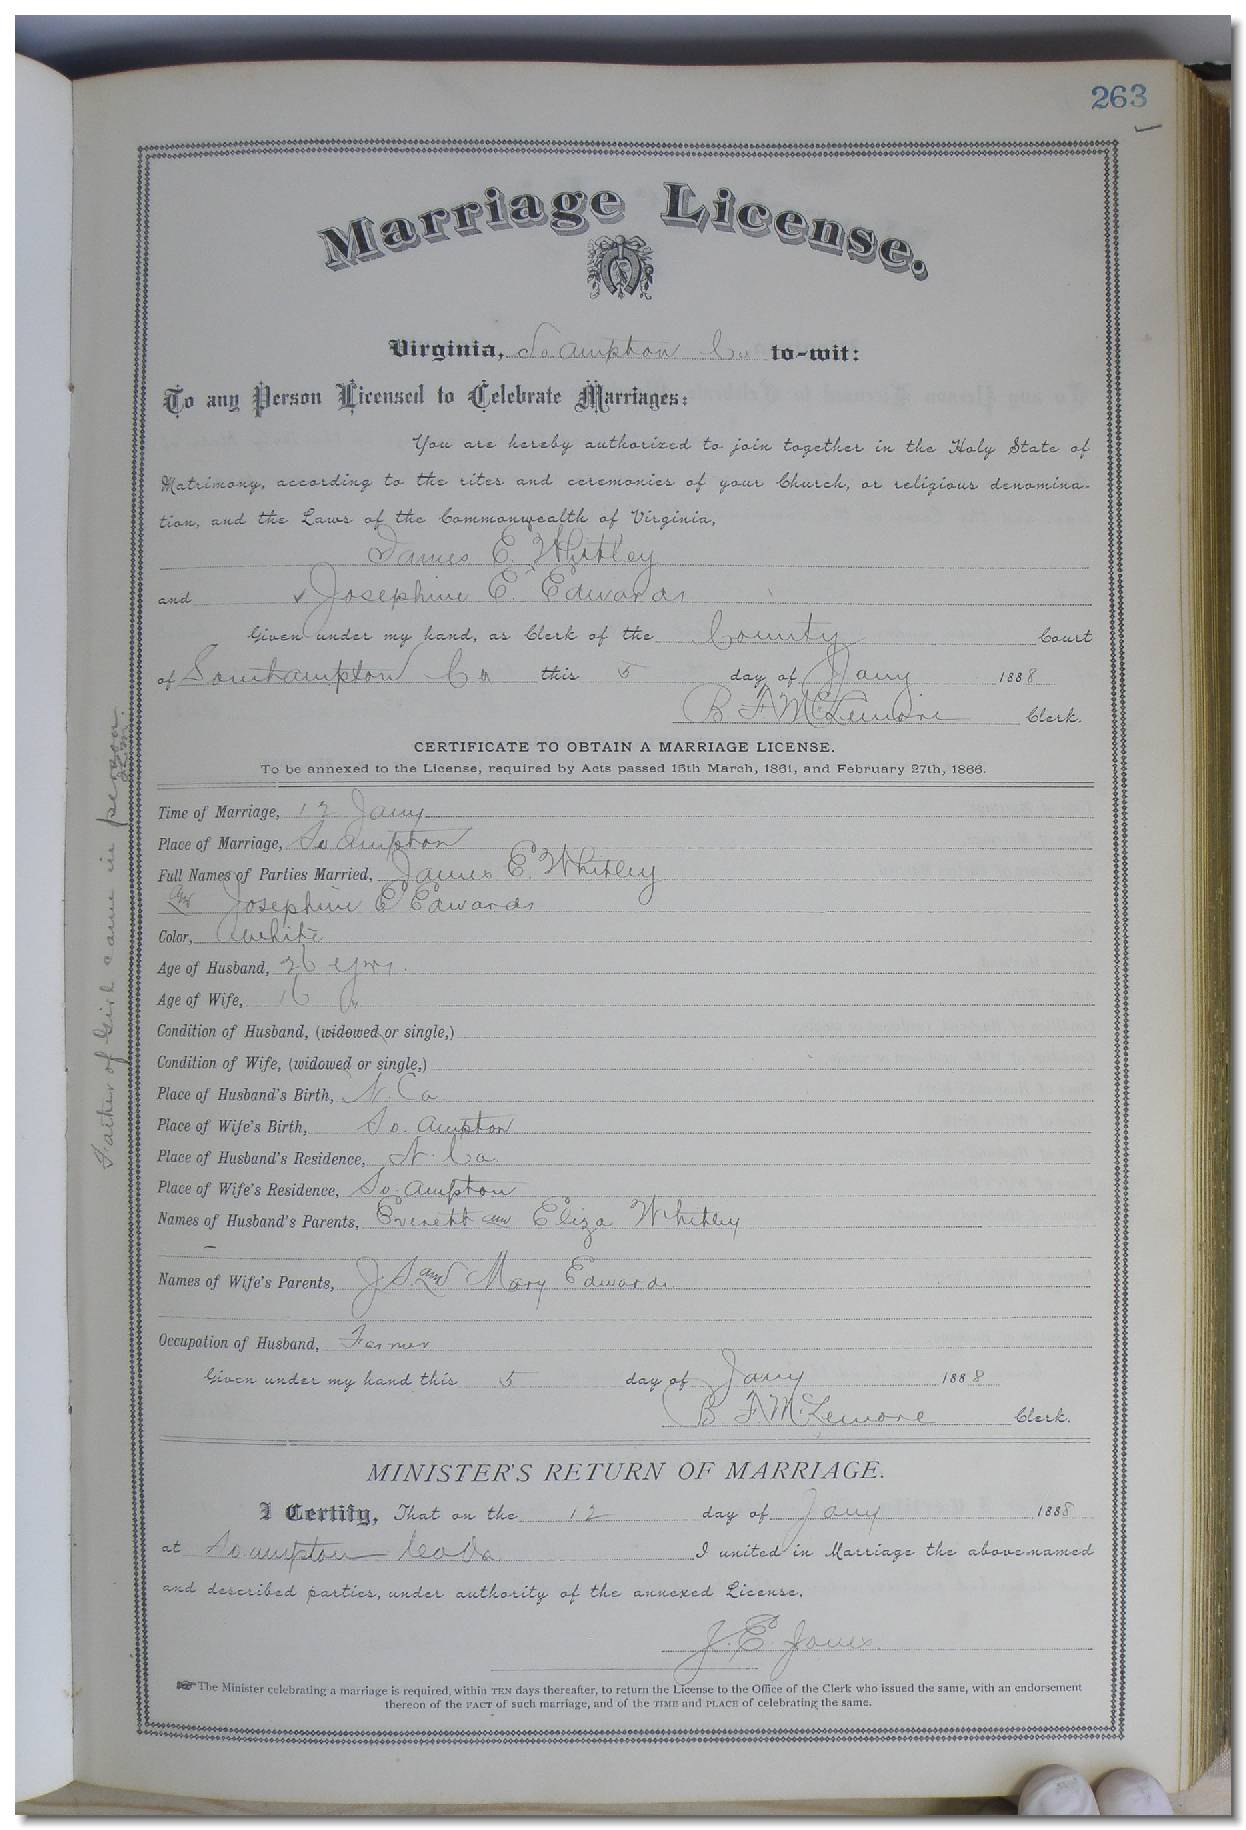 263
Marriage License.
Virginia, So ampton Co to-wit:
To any Person Licensed to Celebrate Marriages:
You are hereby authorized to join together in the Holy State of
Matrimony, according to the rites and ceremonies of your Church, or religious denomina-
tion, and the Laws of the Commonwealth of Virginia,
James E. Whitley
and Josephine E. Edwards
Given under my hand, as Clerk of the County Court
of Southampton Co this 5 day of Jany 1888
B F McLemore Clerk.
CERTIFICATE TO OBTAIN A MARRIAGE LICENSE.
To be annexed to the License, required by Acts passed 15th March, 1861, and February 27th, 1866.
Time of Marriage, 12 Jany
Place of Marriage, So ampton
Full Names of Parties Married, James E. Whitley
and Josephine E Edwards
Color, White
Age of Husband, 26 yrs.
Age of Wife, 16
Condition of Husband, (widowed or single,)
Condition of Wife, (widowed or single,)
Place of Husband's Birth, N. Ca
Place of Wife's Birth, So. ampton
Place of Husband's Residence, N. Ca.
Place of Wife's Residence, So. ampton
Names of Husband's Parents, Everett and Eliza Whitley
Names of Wife's Parents, J. S. and Mary Edwards
Occupation of Husband, Farmer
Given under my hand this 5 day of Jany 1888
B F McLemore Clerk.
MINISTER'S RETURN OF MARRIAGE.
I Certify, That on the 12 day of Jany 1888
at So ampton Co Va I united in Marriage the above-named
and described parties, under authority of the annexed License.
J. E. Jones.
The Minister celebrating a marriage is required, within TEN days thereafter, to return the License to the Office of the Clerk who issued the same, with an endorsement
thereof of the FACT of such marriage, and of the TIME and PLACE of celebrating the same.
Father of Girl came in person.